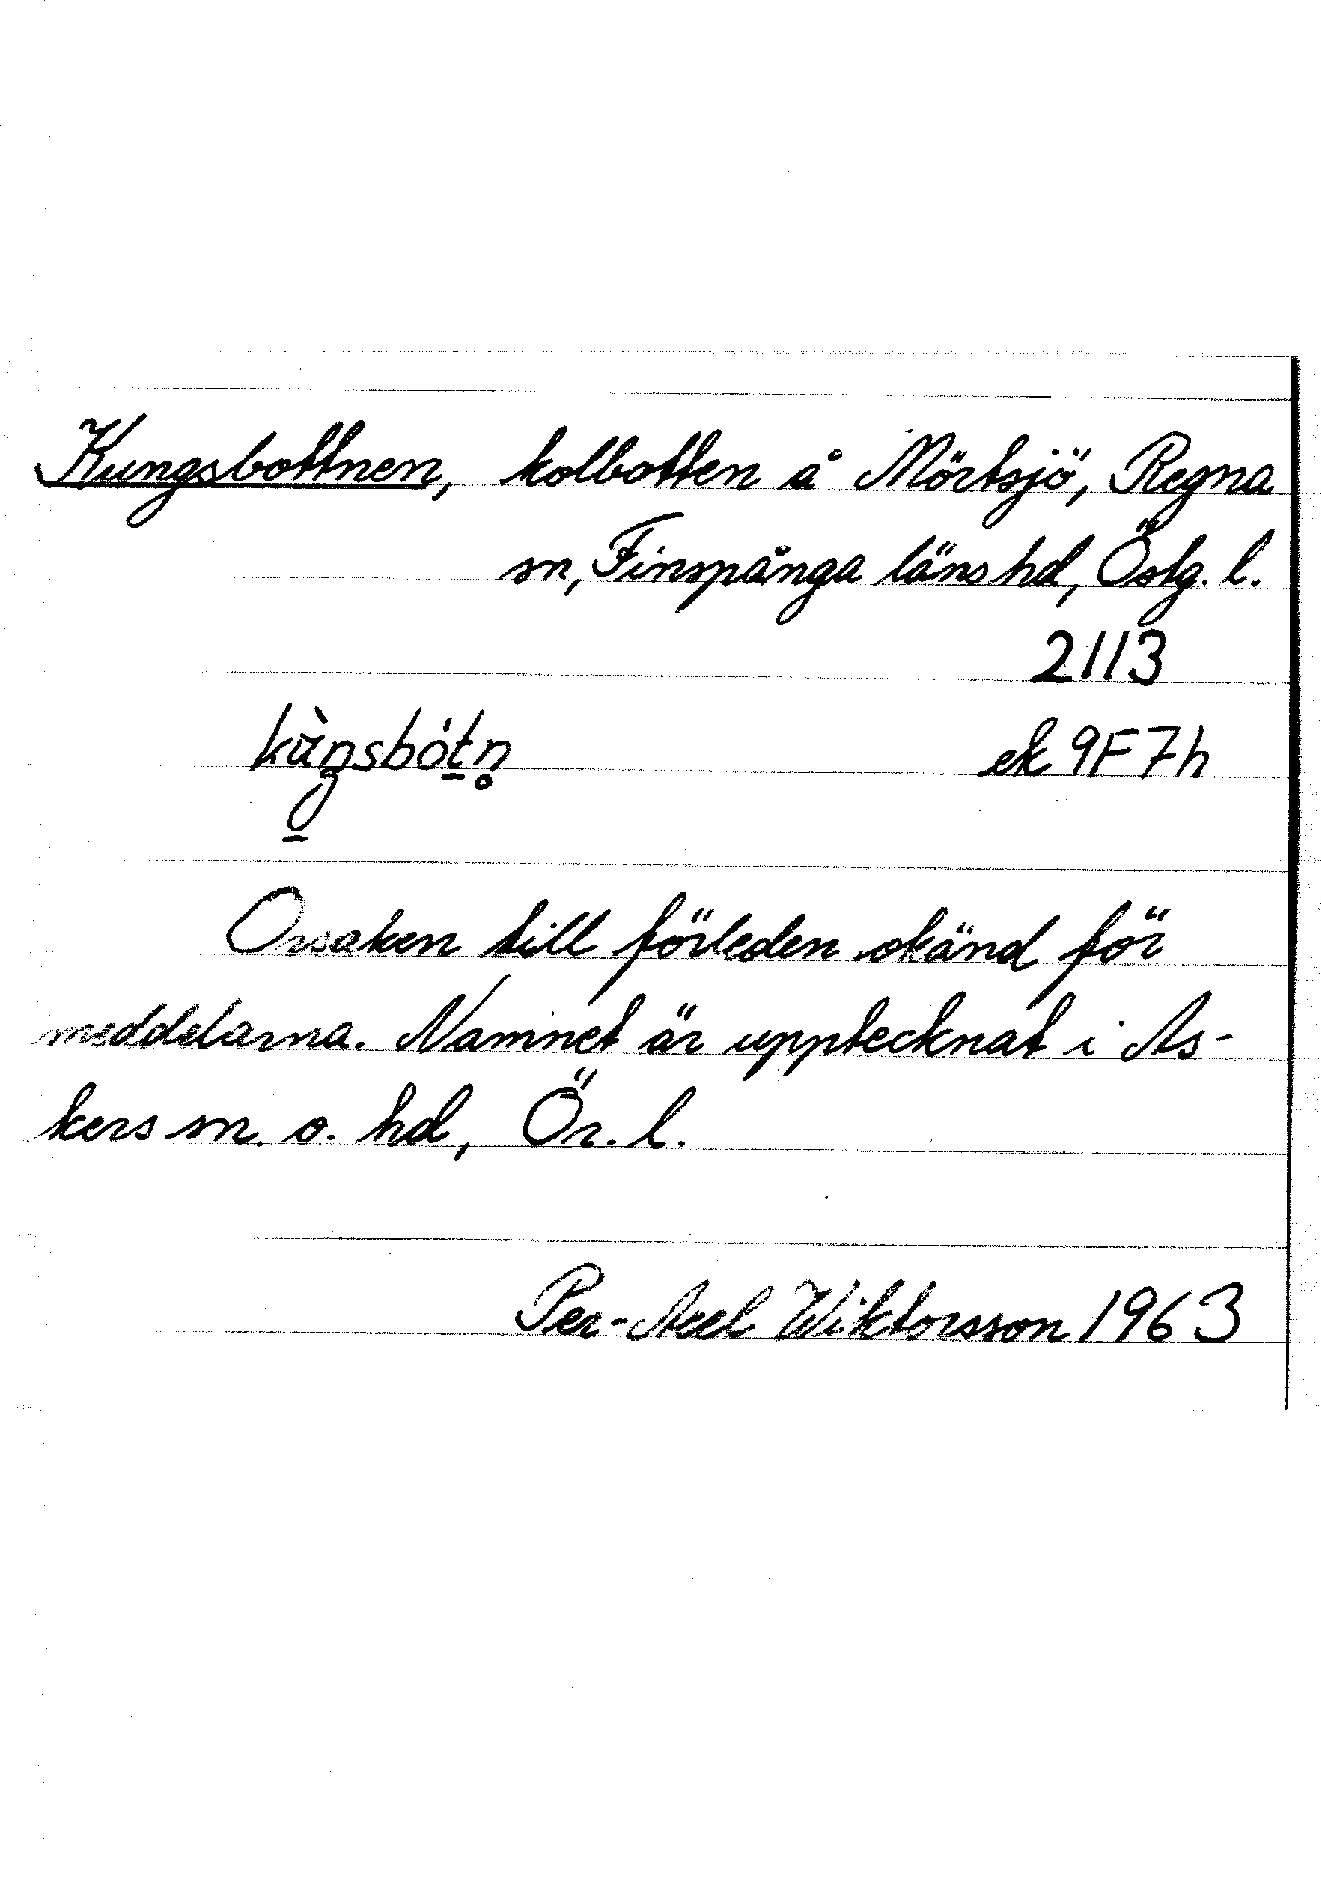 Kungsbottnen, kolbotten å Mörtsjö, Regna
sn, Finspånga läns hd, Östg. l.
2113
kùŋsbót̠n̥ ek 9F7h
Orsaken till förleden okänd för
meddelarna. Namnet är upptecknat i As-
kers sn. o. hd, Ör. l.
Per-Axel Wiktorsson 1963